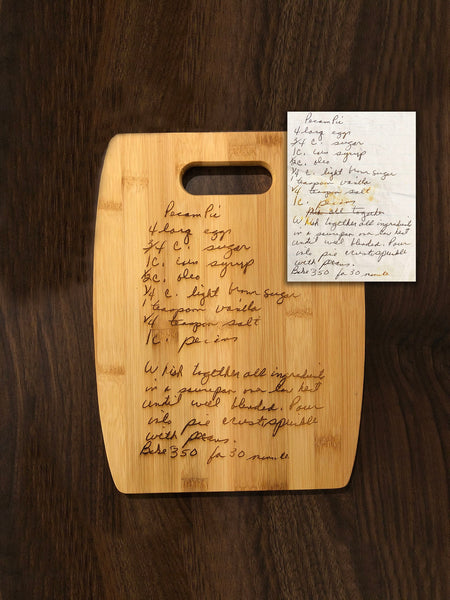 Pecan Pie
4 larg eggs
3/4 C. sugar
1 C. Caro syrup
1/2 C. oleo
1/4 C. light brown sugar
1 teaspoon vanilla
1/4 teaspoon salt
1 C. pecans
Whish together all ingredients
in a saucepan over low heat
until well blended. Pour
into pie crust, sprinkle
with pecans.
Bake 350 for 30 minute
Pecan Pie
4 larg eggs
3/4 C. sugar
1 C. Caro syrup
1/2 C. oleo
1/4 C. light brown sugar
1 teaspoon vanilla
1/4 teaspoon salt
1 C. pecans
Mix all together
Whish together all ingredients
in a saucepan over low heat
until well blended. Pour
into pie crust, sprinkle
with pecans.
Bake 350 for 30 minute